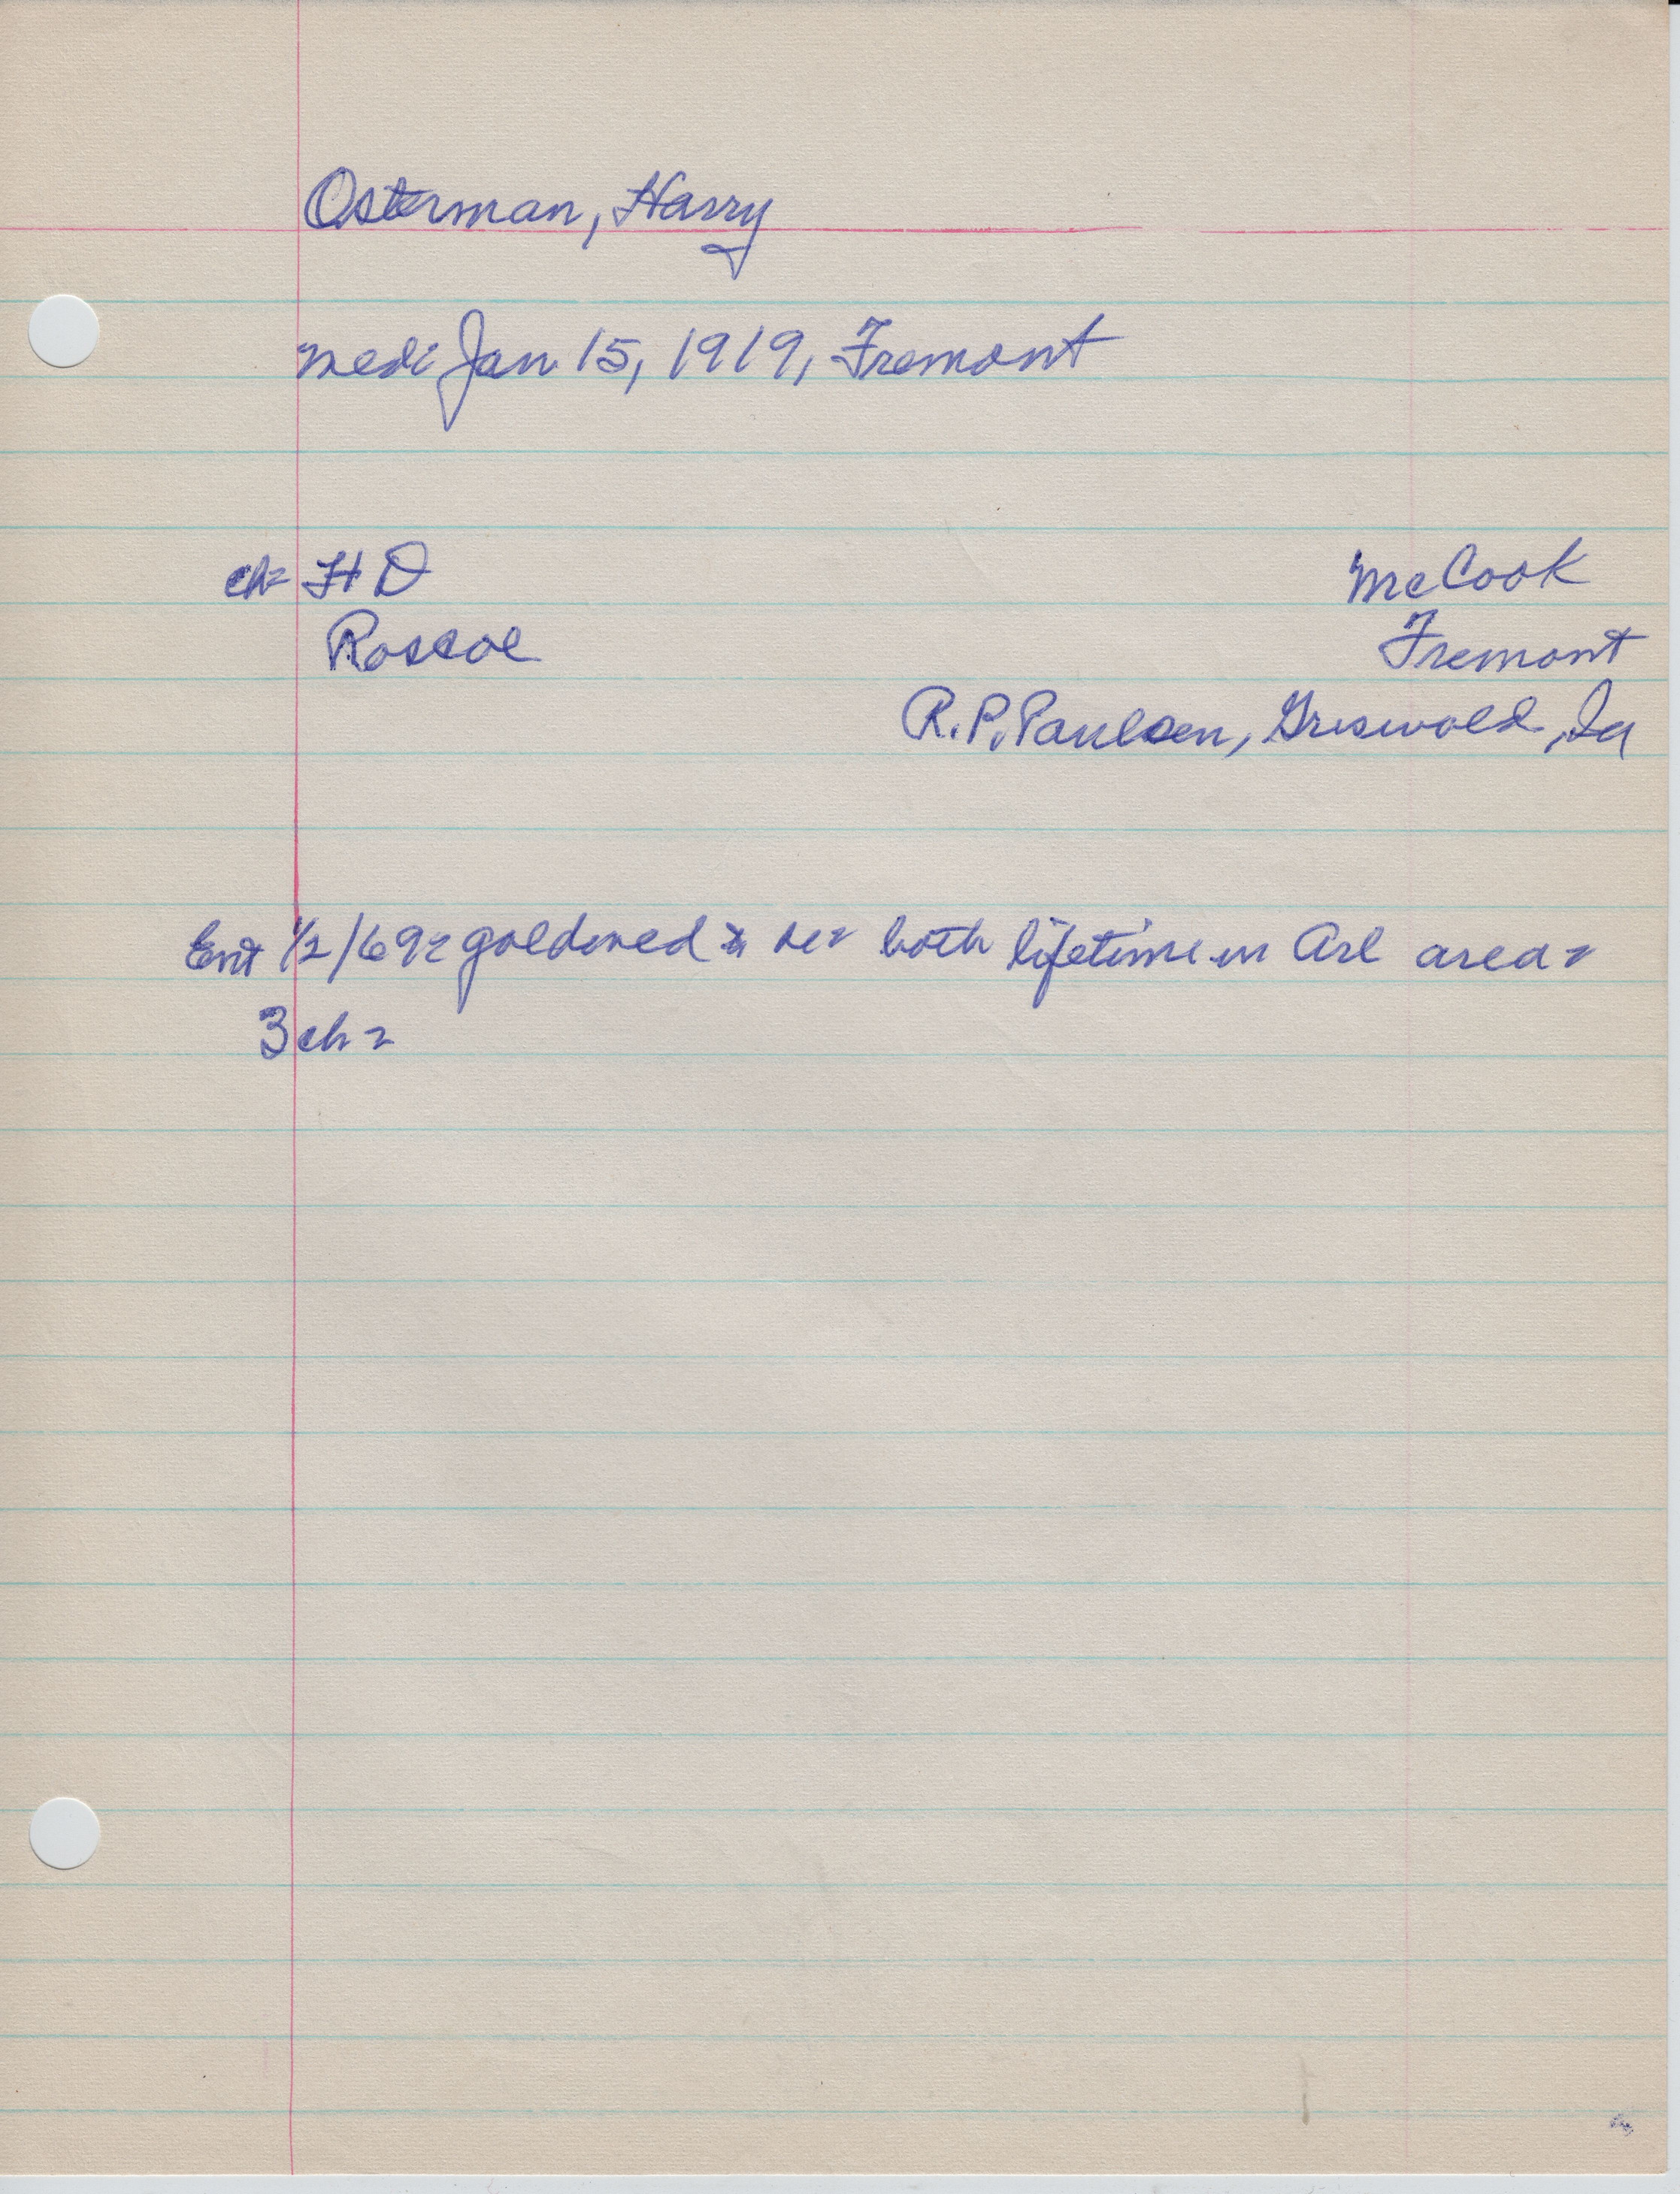 Osterman, Harry
med: Jan 15, 1919, Fremont
ch= H D McCook
Roscoe Fremont
R.P. Paulsen, Griswold, Ia
Ent 1/2/69= goldwed = both lifetime in Arl area=
3 ch=